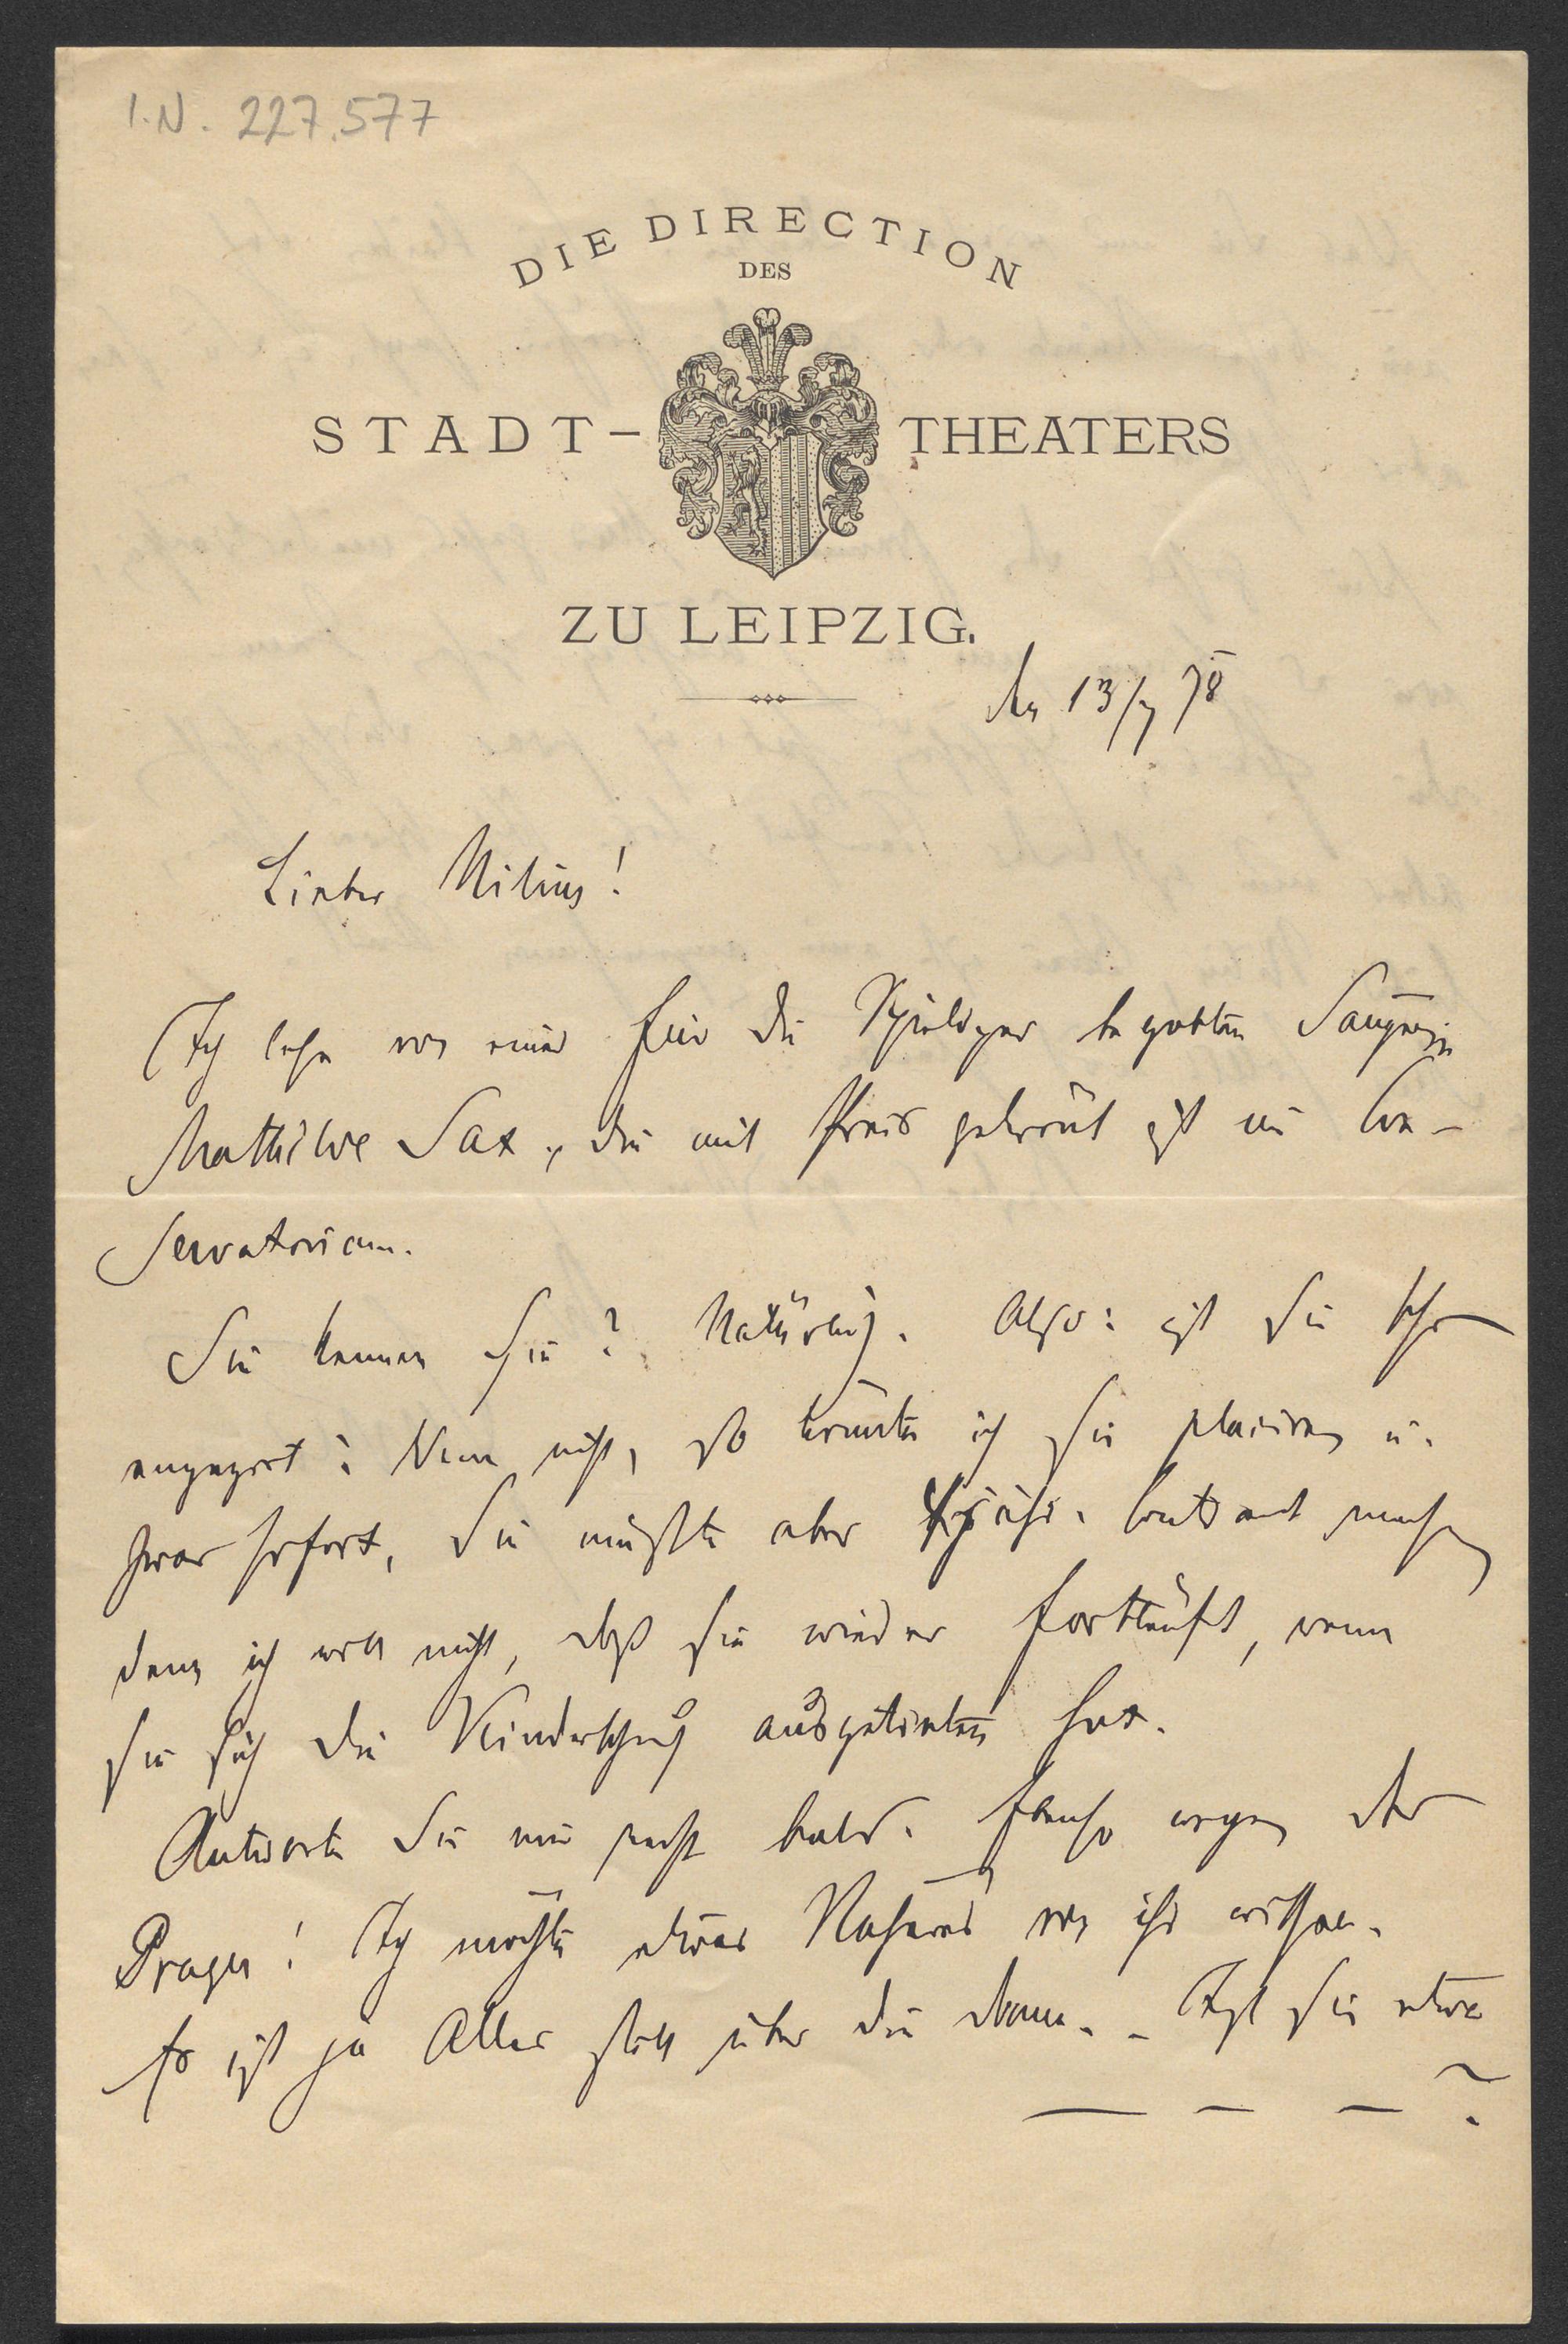 I.N. 227.577
DIE DIRECTION
DES
STADT- THEATERS
ZU LEIPZIG.
den 13/7 78
Lieber Milius!
Ich lese von einer für die Spieloper begabten Sängerin
Mathilde Sax, die mit Preis gekrönt ist im Con-
servatorium.
Sie kennen sie? Natürlich. Also: ist sie schon
engagirt? Wenn nicht, so könnte ich sie placiren u.
zwar sofort, sie müßte aber Contract machen
denn ich will nicht, daß sie wieder fortläuft, wenn
sie sich die Kinderschuh ausgetreten hat.
Antworten Sie mir recht bald. Ebenso wegen der
Prager! Ich möchte etwas Näheres von ihr wissen.
Es ist ja Alles still über die Dame. – Ist sie etwa
— – – ?